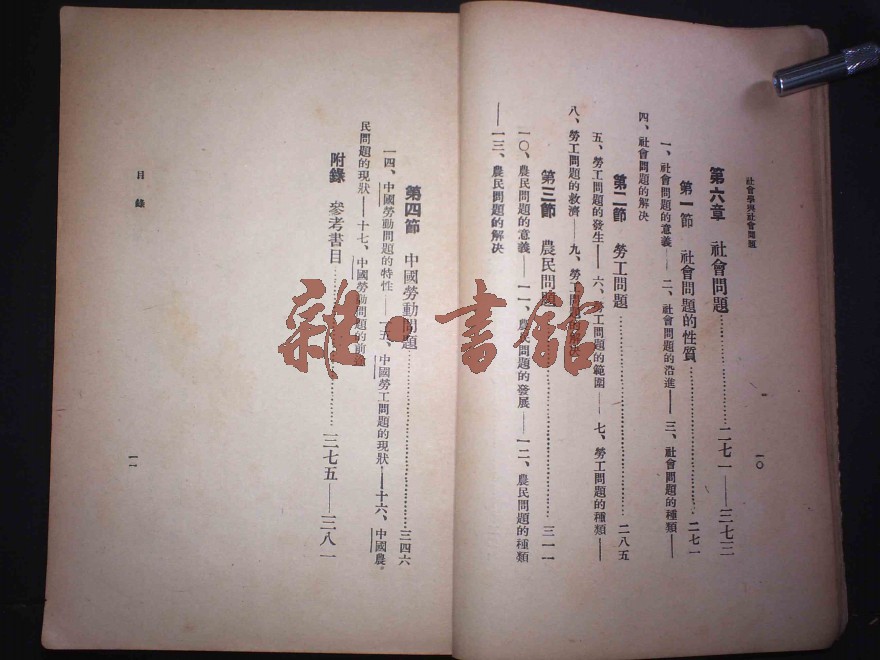 社會學與社會問題
第六章 社會問題……二七一——三七三
第一節 社會問題的性質……二七一
一、社會問題的意義——二、社會問題的沿進——三、社會問題的種類——
四、社會問題的解決
第二節 勞工問題……二八五
五、勞工問題的發生——六、勞工問題的範圍——七、勞工問題的種類——
八、勞工問題的救濟——九、勞工問題的解決
第三節 農民問題……三一一
一〇、農民問題的意義——一一、農民問題的發展——一二、農民問題的種類
——一三、農民問題的解決
一〇
第四節 中國勞動問題……三四六
一四、中國勞動問題的特性——一五、中國勞工問題的現狀——十六、中國農。
民問題的現狀——十七、中國勞動問題的前途
附錄 參考書目……三七五——三八一
目錄
一一
雜·書館